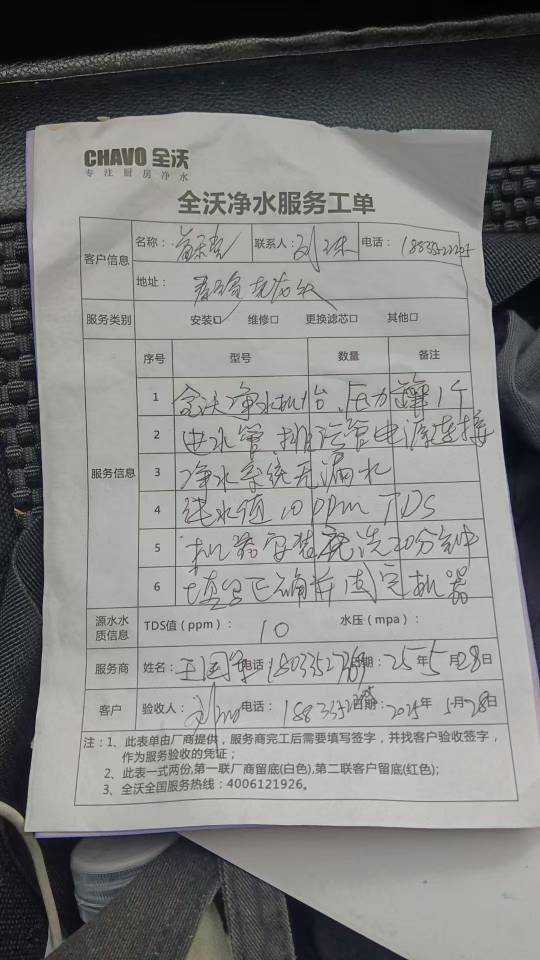 CHAVO 全沃
专注厨房净水
全沃净水服务工单
客户信息 名称： 联系人：刘 电话：
地址：
服务类别 安装□ 维修□ 更换滤芯□ 其他□
服务信息 序号 型号 数量 备注
1 全沃净水机1台、压力罐1个
2 进水管排污管电源连接
3 净水系统无漏水
4 纯水值10ppm TDS
5 机器安装冲洗20分钟
6 正确并固定机器
源水水质信息 TDS值（ppm）： 10 水压（mpa）：
服务商 姓名：王国 电话 日期：25年5月28日
客户 验收人：刘 电话： 日期：2025年5月28日
注：1、此表单由厂商提供，服务商完工后需要填写签字，并找客户验收签字，
作为服务验收的凭证；
2、此表一式两份,第一联厂商留底(白色),第二联客户留底(红色);
3、全沃全国服务热线：4006121926。